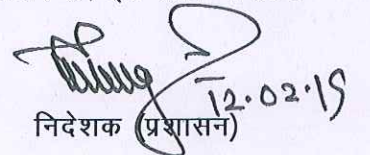 12.02.19
निदेशक (प्रशासन)